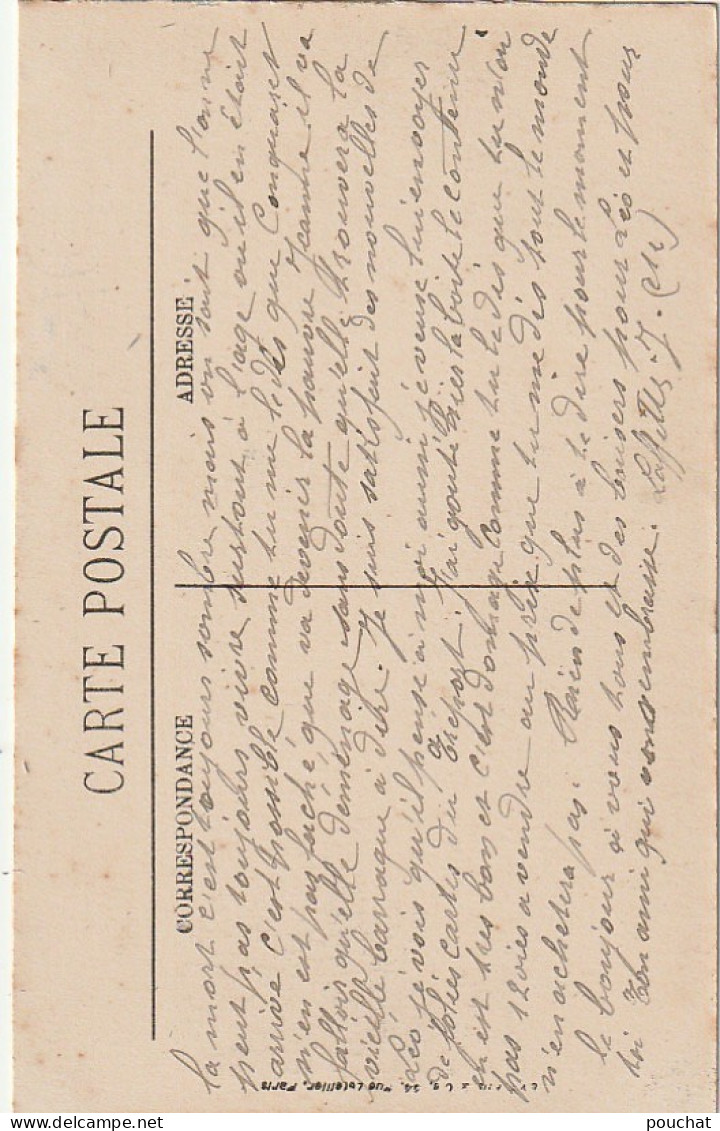 CARTE POSTALE
CORRESPONDANCE
ADRESSE
la mort c'est toujours sombre mais on sait que l'on ne
peut pas toujours vivre surtout à l'age ou il en était
arrivé c'est possible comme tu me le dès que Conquaret
n'en est pas faché, que va devenir la pauvre Jeanne il va
falloir qu'elle déménage sans doute qu'elle trouvera la
vieille barraque à dire. Je suis satisfait des nouvelles de
Léo je vois qu'il pense à moi aussi je veuse lui envoyer
de jolies cartes du Tréport. J'ai gouté hier la boite le contenu
en est très bon et c'est domage comme tu le dès que tu n'en
pas 12 oies a vendre au prix que tu me dès tout le monde
n'en achetera pas. Rien de plus à te dire pour le moment
le bonjour à vous tous et des baisers pour Léo et pour
toi Ton ami qui vous embrasse. Lafitte. J.
rue Letellier, Paris
pouchat